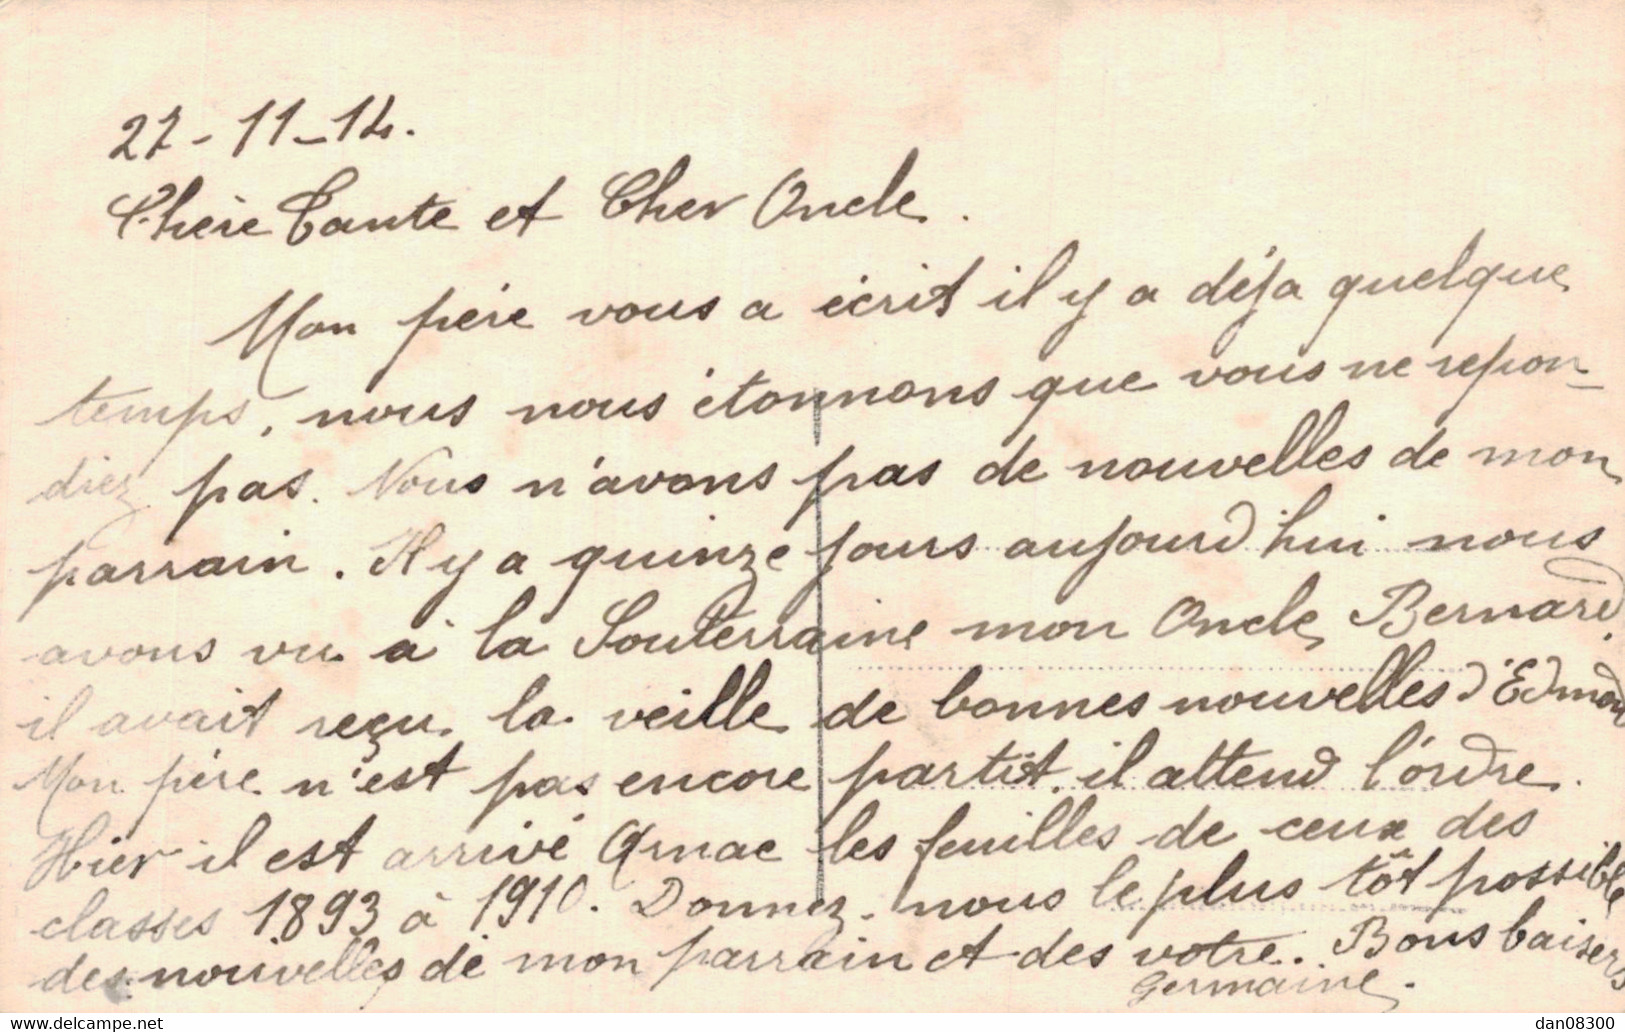 27-11-14.
Chère Tante et Cher Oncle.
Mon père vous a écrit il y a déja quelque
temps, nous nous étonnons que vous ne repon-
diez pas. Nous n'avons pas de nouvelles de mon
parrain. Il y a quinze jours aujourd'hui nous
avons vu à la Souterraine mon Oncle Bernard,
il avait reçu la veille de bonnes nouvelles d'Edmond
Mon père n'est pas encore partit, il attend l'ordre.
Hier il est arrivé Arnac les feuilles de ceux des
classes 1893 à 1910. Donnez-nous le plus tôt possible
des nouvelles de mon parrain et des votre. Bons baisers
Germaine.
www.delcampe.net
dan08300